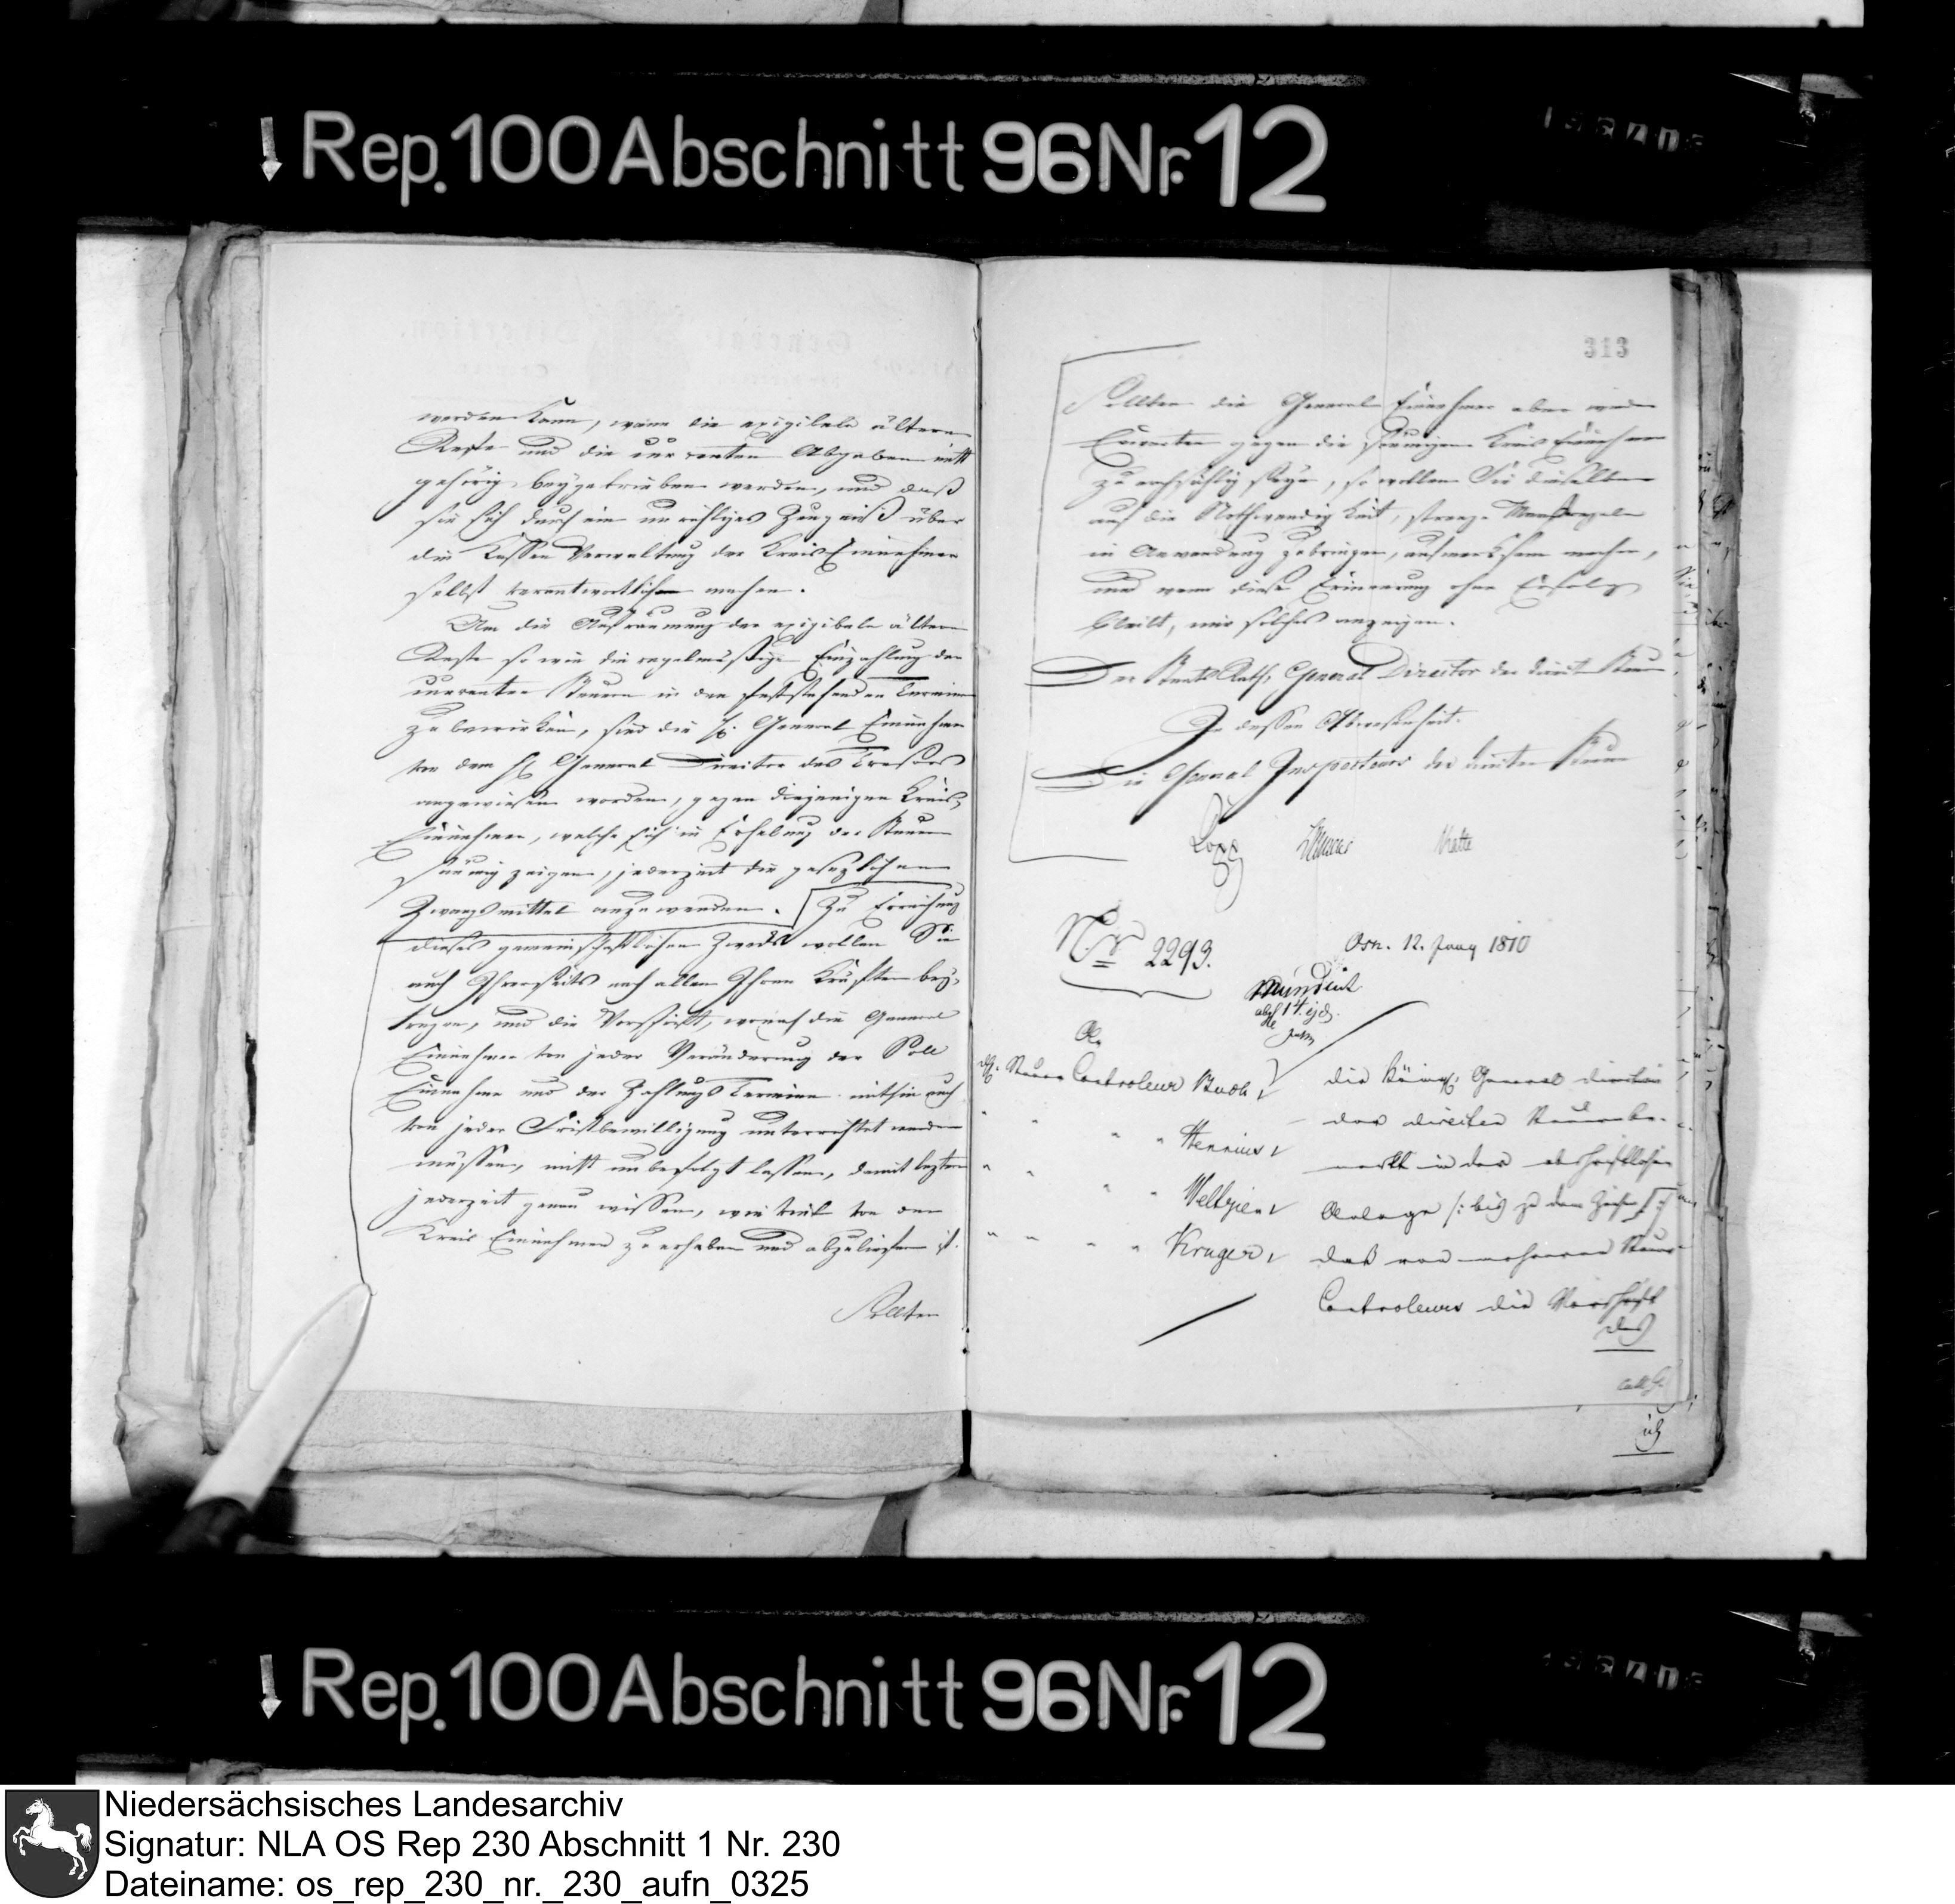 Rep. 100 Abschnitt 96 Nr. 12
werden kann, wenn die exigibeln ältern
Reste und die currenten Abgaben nicht
gehörig beygetrieben werden, und daß
sie sich durch ein unrichtiges Zeugniß über
die Kassen Verwaltung der Kreis Einnehmer
selbst verantwortlich machen.
Um die Aufräumung der exigibeln ältern
Reste so wie die regelmäßige Einzahlung der
currenten Steuern in den feststehenden Terminen
zu bewirken, sind die H. General Einnehmer
von dem H. General Director des Tresors
angewiesen worden, gegen diejenigen Kreis,
Einnehmer, welche sich in Erhebung der Steuern
säumig zeigen, jederzeit die gesezlichen
Zwangsmittel anzuwenden. Zu Erreichung
dieses gemeinschaftlichen Zwecks wollen Sie
auch Ihrerseits nach allen Ihren Kräften bey,
tragen, und die Vorschrift, wonach die General
Einnehmer von jeder Veränderung der Soll
Einnahme und der Zahlungs Termine mithin auch
von jeder Fristbewilligung unterrichtet werden
müssen, nicht unbefolgt lassen, damit leztere
jederzeit genau wissen, wie viel von den
Kreis Einnehmern zu erheben und abzuliefern ist.
Sollten
313
Sollten die General Einnehmer aber wieder
Erwarten gegen die säumigen Kreis Einnehmer
zu nachsichtig seyn, so wollen Sie dieselben
auf die Nothwendigkeit, strenge Maasregeln
in Anwendung zu bringen, aufmerksam machen,
und wenn diese Erinnerung ohne Erfolg
bleibt, mir solches anzeigen.
Der Staats Rath, General Director der direct. Steuern
In dessen Abwesenheit.
Die General Inspecteurs der directen Steuern
No. 2293.
Osn. 12. Juny 1810
Mundirt
An
Steuer Controleur Buch,
" " " " Henrius,
" " " " Veltzien,
" " " " Kruger,
die Königl. General direction
der directen Steuern be-
merkt in der abschriftlichen
Anlage /: bis zu dem Zeichen
daß von mehreren Steuer-
Controleurs die Vorschrift
das
ich
Rep. 100 Abschnitt 96 Nr. 12
Niedersächsisches Landesarchiv
Signatur: NLA OS Rep 230 Abschnitt 1 Nr. 230
Dateiname: os_rep_230_nr._230_aufn_0325